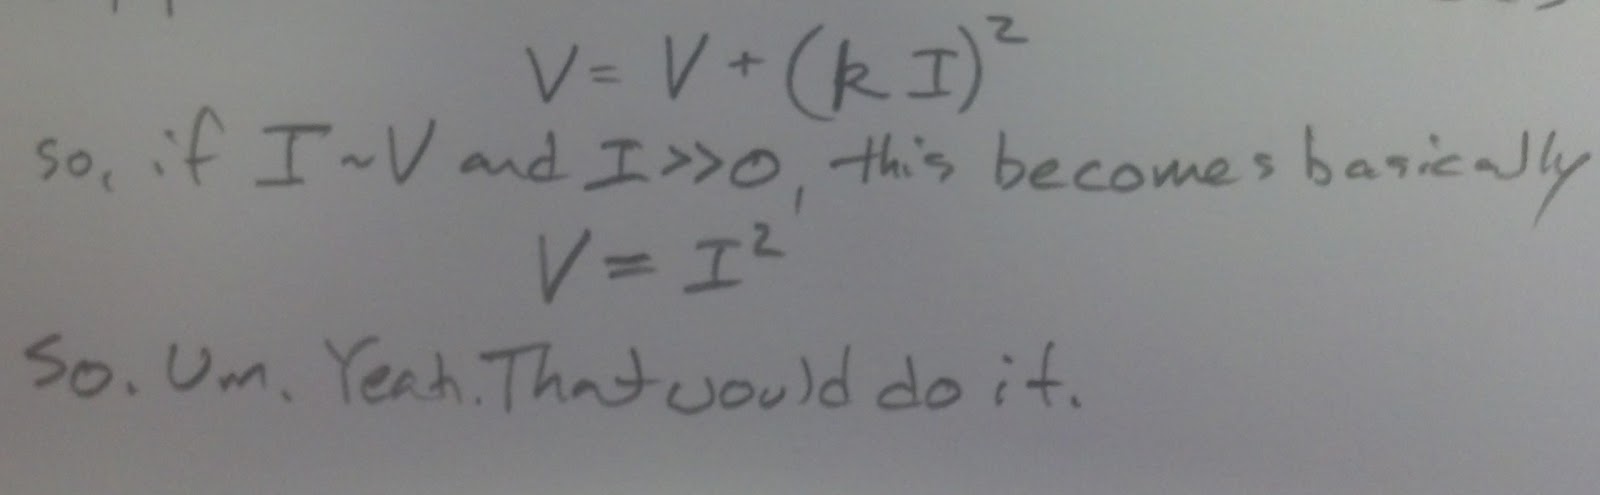 V = V + (k I)²
so, if I ~ V and I >> 0, this becomes basically
V = I²
So. Um. Yeah. That would do it.